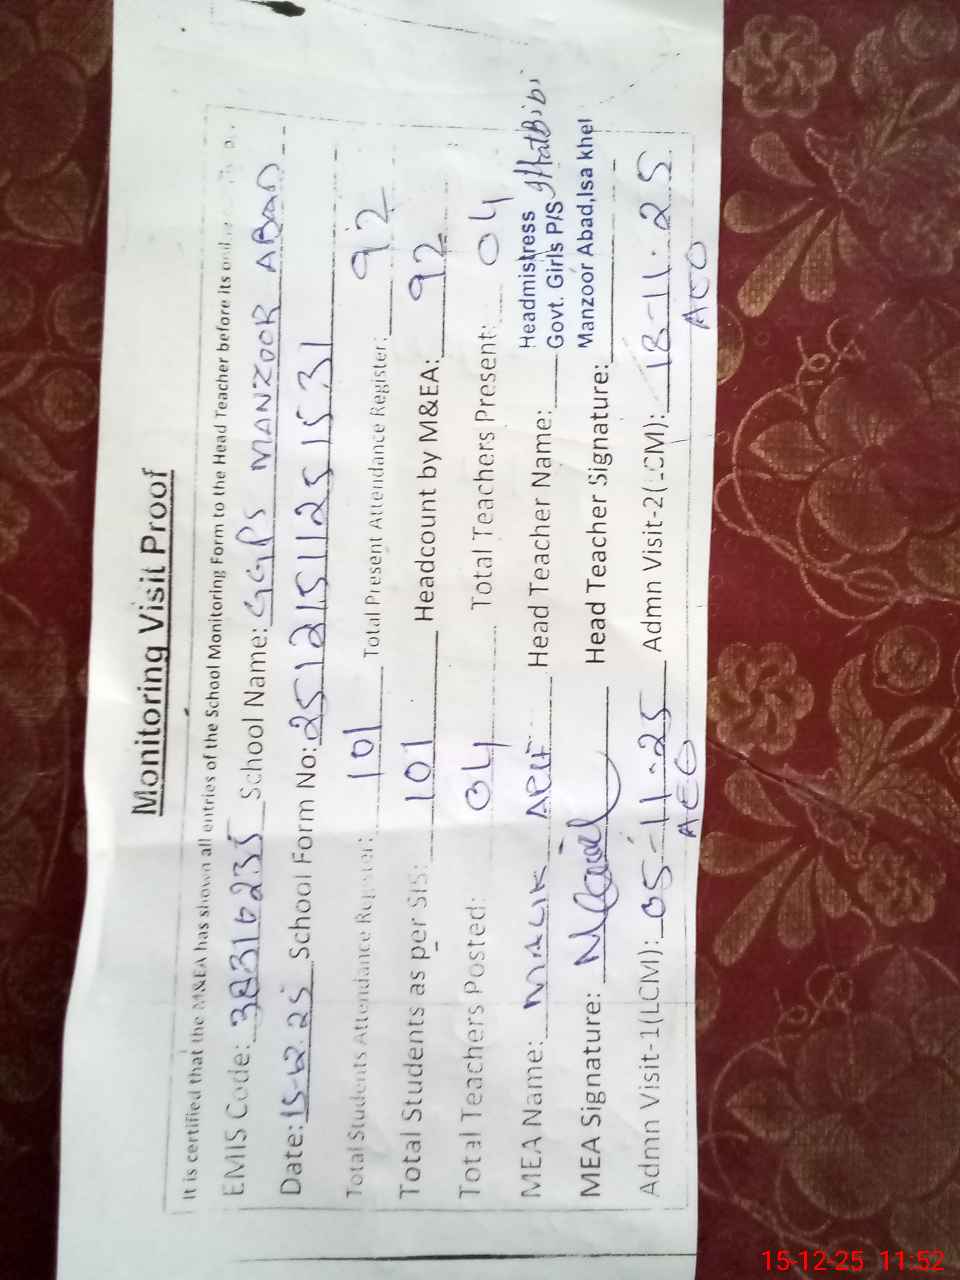 Monitoring Visit Proof
It is certified that the M&EA has shown all entries of the School Monitoring Form to the Head Teacher before its
EMIS Code: 38316235 School Name: GGPS MANZOOR ABAD
Date: 15-12.25 School Form No: 251215112515 31
Total Students Attendance Register: 101 Total Present Attendance Register: 92
Total Students as per SIS: 101 Headcount by M&EA: 92
Total Teachers Posted: 04 Total Teachers Present: 04
MEA Name: MALIK Head Teacher Name: Headmistress
Govt. Girls P/S
Manzoor Abad,Isa khel
MEA Signature: Head Teacher Signature:
Admn Visit-1(LCM): 05-11-25 Admn Visit-2(LCM): 18-11-25
AEO AEO
15-12-25 11:52